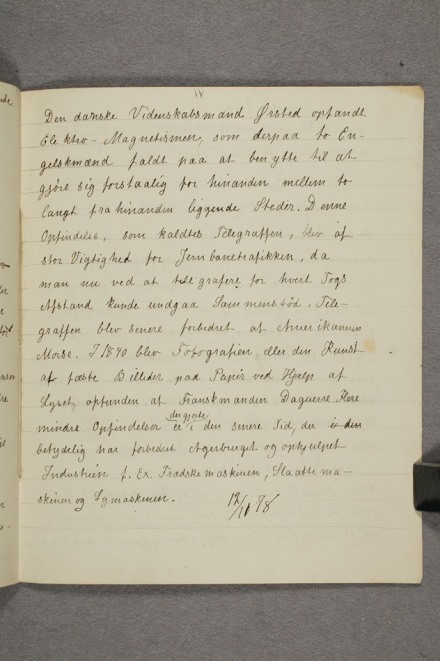 IV
Den danske Videnskabsmand Ørsted opfandt
Elektro-Magnetismen, som derpaa to En-
gelskmænd faldt paa at benytte til at
gjöre sig forstaalig for hinanden mellem to
langt fra hinanden liggende Steder. Denne
Opfindelse, som kaldtes Telegraffen, blev af
stor Vigtighed for Jernbanetrafikken, da
man nu ved at telegrafere for hvert Togs
Afstand kunde undgaa Sammenstöd. Tele-
graffen blev senere forbedret af Amerikaneren
Morse. I 1840 blev Fotografien, eller den Kunst
at fæste Billeder paa Papir ved Hjælp af
Lyset, opfunden af Franskmanden Daguerre. Flere
mindre Opfindelser er i den senere Tid, der i den
betydelig har forbedret Agerbruget og ophjulpet
Industrien f. Ex. Tærskemaskinen, Slaattema-
skinen og Symaskinen.
12/11 78